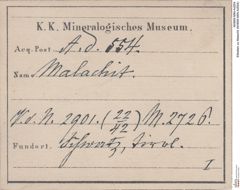 K. K. Mineralogisches Museum.
Acq. Post A. d. 554.
Name Malachit.
V. d. N. 2901. (22/42) M. 2726.
Fundort. Schwatz, Tirol.
I